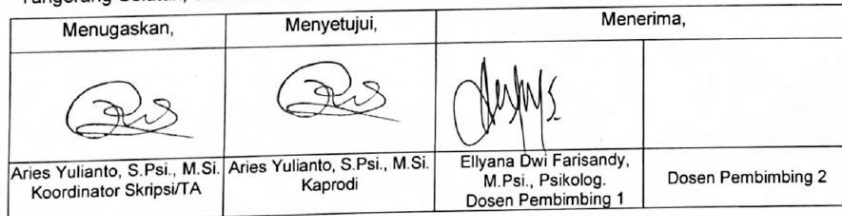 Tangerang Selatan,
Menugaskan,
Menyetujui,
Menerima,
Aries Yulianto, S.Psi., M.Si.
Koordinator Skripsi/TA
Aries Yulianto, S.Psi., M.Si.
Kaprodi
Ellyana Dwi Farisandy,
M.Psi., Psikolog.
Dosen Pembimbing 1
Dosen Pembimbing 2